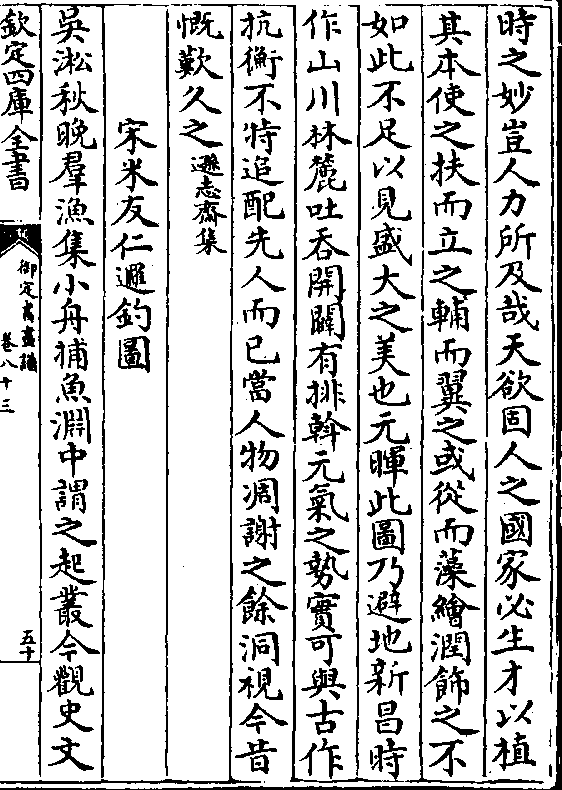 時之妙豈人力所及哉天欲固人之國家必生才以植
其本使之扶而立之輔而翼之或從而藻繪潤飾之不
如此不足以見盛大之美也元暉此圖乃避地新昌時
作山川林麓吐吞開闔有排斡元氣之勢實可與古作
抗衡不特追配先人而已當人物凋謝之餘洞視今昔
慨歎久之遜志齋集
宋米友仁遯釣圖
吳淞秋晚羣漁集小舟捕魚淵中謂之起叢今觀史文
欽定四庫全書
御定書畫譜
卷八十三
五十